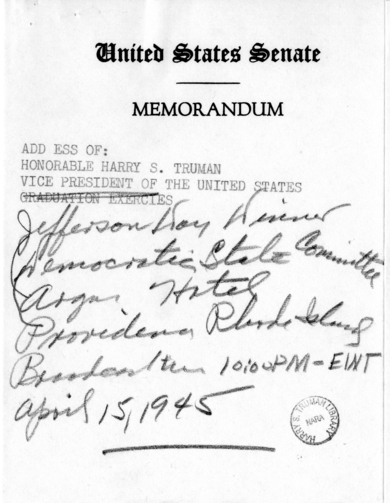 United States Senate
MEMORANDUM
ADD ESS OF:
HONORABLE HARRY S. TRUMAN
VICE PRESIDENT OF THE UNITED STATES
GRADUATION EXERCIES
Jefferson Day Dinner
Democratic State Committee
Hotel
Providence Rhode Island
Broadcast 10:00 PM - EWT
April 15, 1945
HARRY S. TRUMAN LIBRARY
NARA